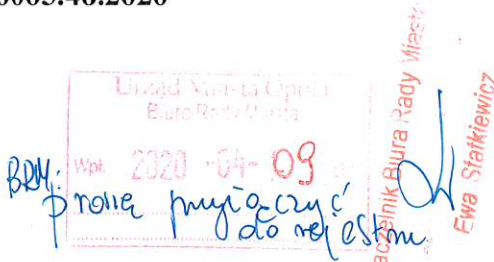 0003.48.2020
Urząd Miasta Opola
Biuro Rady Miasta
Wpł. 2020 -04- 09
BRM:
proszę przyłączyć
do rejestru
Naczelnik Biura Rady Miasta
Ewa Statkiewicz